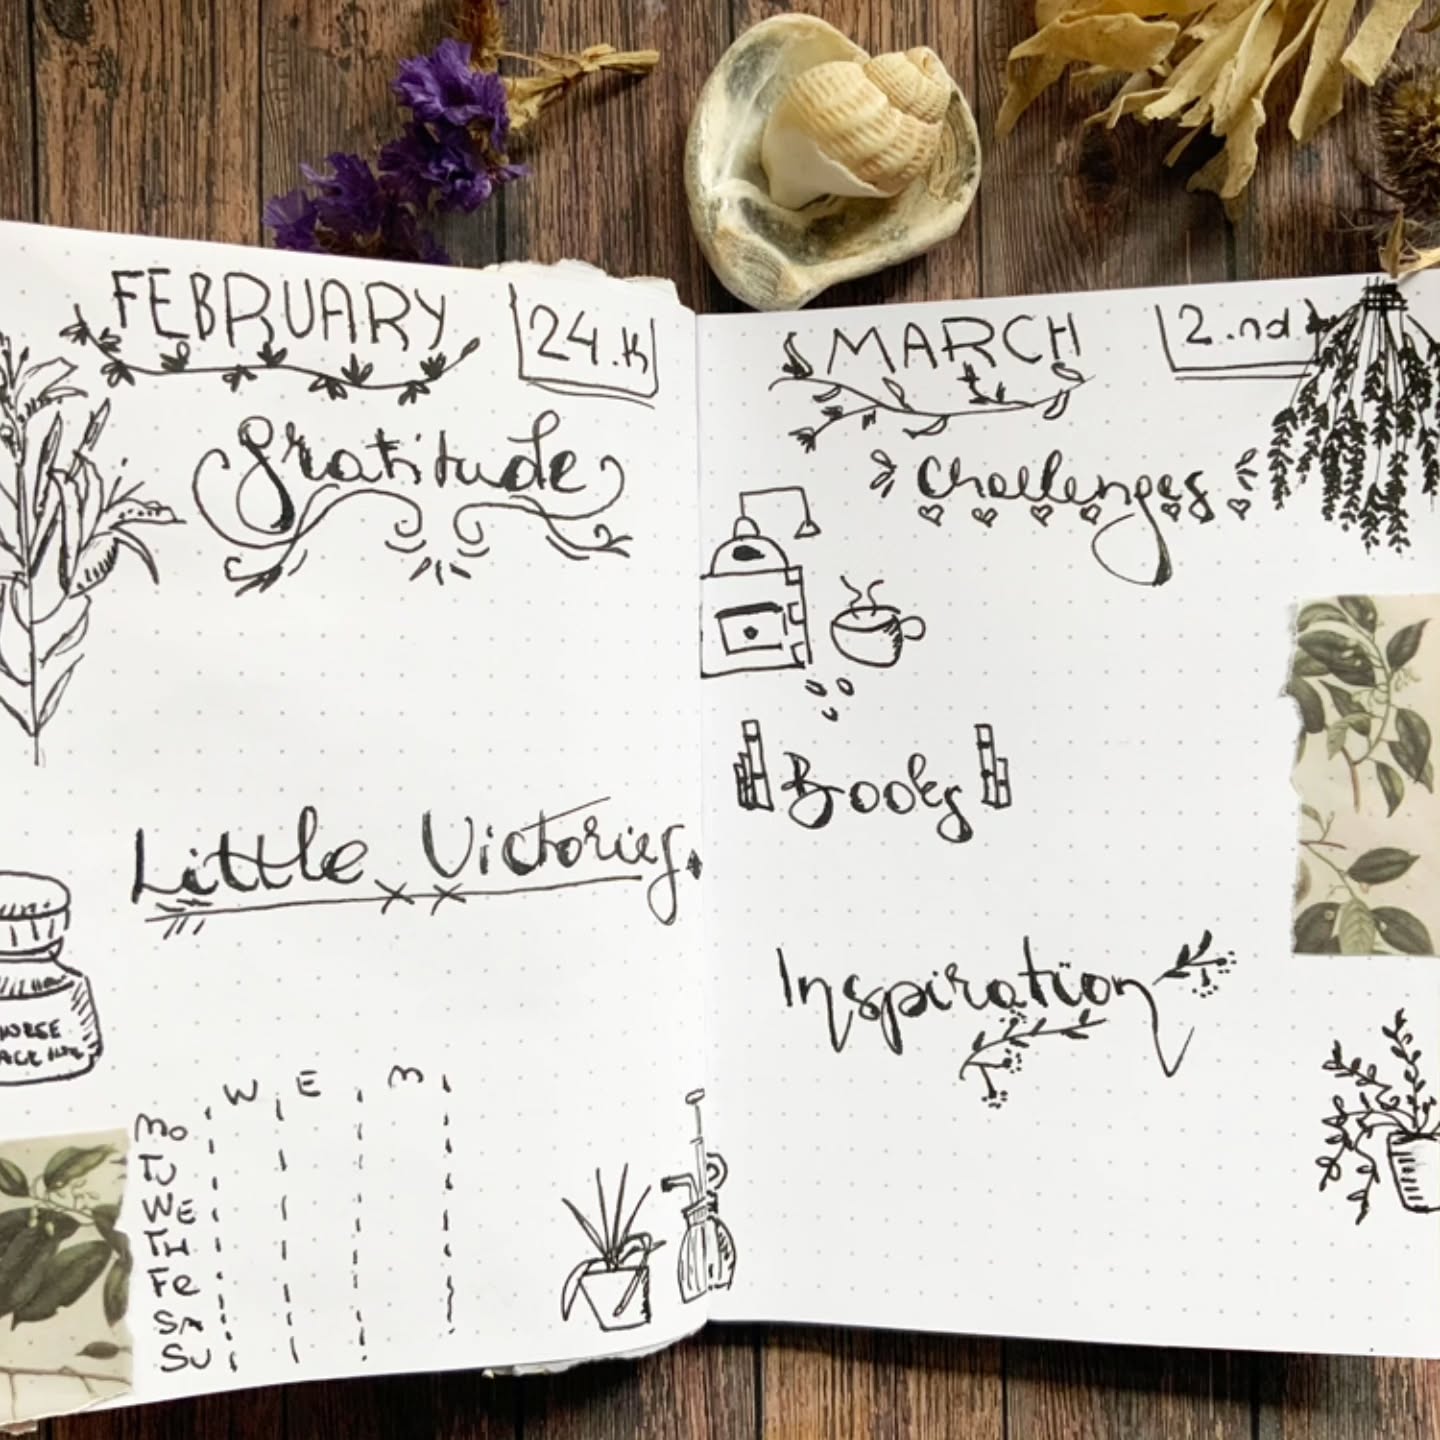 FEBRUARY
24.th
Gratitude
Little Victories
W E M
Mo
TU
WE
TH
Fe
SA
SU
MARCH
2.nd
Challenges
Books
Inspiration